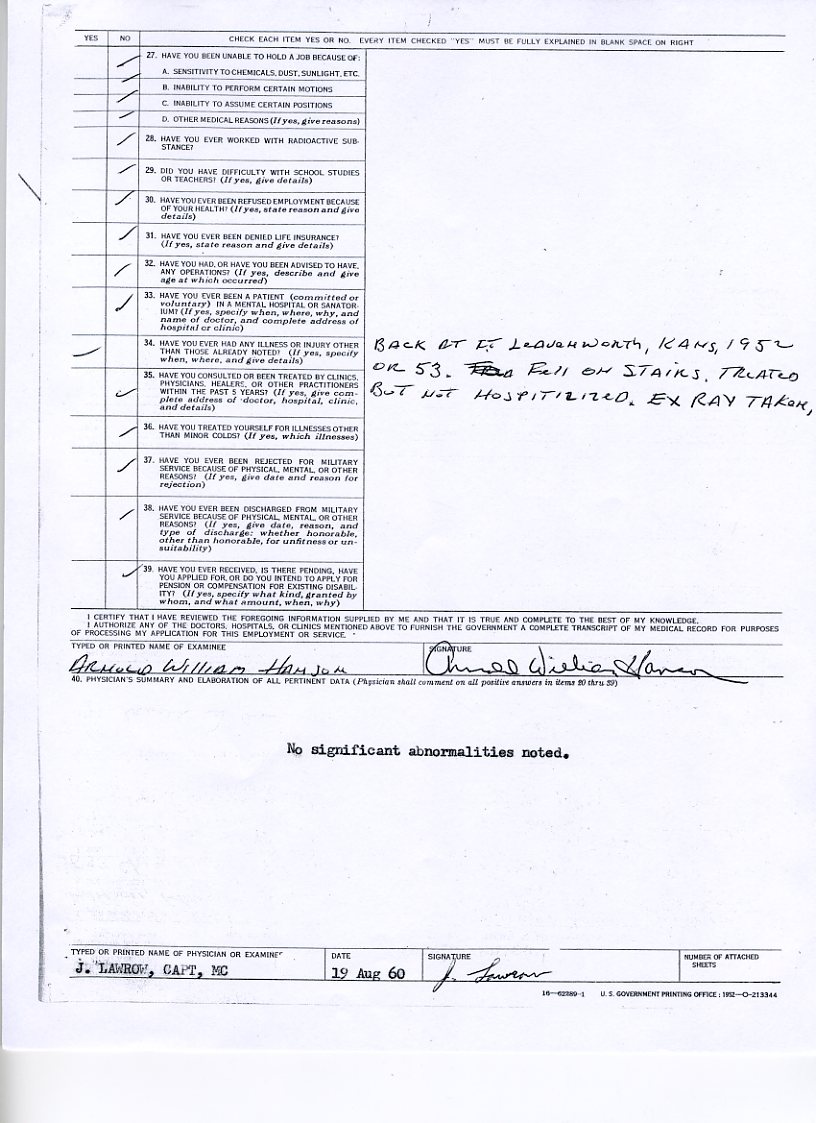 YES NO CHECK EACH ITEM YES OR NO. EVERY ITEM CHECKED "YES" MUST BE FULLY EXPLAINED IN BLANK SPACE ON RIGHT
27. HAVE YOU BEEN UNABLE TO HOLD A JOB BECAUSE OF:
A. SENSITIVITY TO CHEMICALS, DUST, SUNLIGHT, ETC.
B. INABILITY TO PERFORM CERTAIN MOTIONS
C. INABILITY TO ASSUME CERTAIN POSITIONS
D. OTHER MEDICAL REASONS (If yes, give reasons)
28. HAVE YOU EVER WORKED WITH RADIOACTIVE SUB-
STANCE?
29. DID YOU HAVE DIFFICULTY WITH SCHOOL STUDIES
OR TEACHERS? (If yes, give details)
30. HAVE YOU EVER BEEN REFUSED EMPLOYMENT BECAUSE
OF YOUR HEALTH? (If yes, state reason and give
details)
31. HAVE YOU EVER BEEN DENIED LIFE INSURANCE?
(If yes, state reason and give details)
32. HAVE YOU HAD, OR HAVE YOU BEEN ADVISED TO HAVE,
ANY OPERATIONS? (If yes, describe and give
age at which occurred)
33. HAVE YOU EVER BEEN A PATIENT (committed or
voluntary) IN A MENTAL HOSPITAL OR SANATOR-
IUM? (If yes, specify when, where, why, and
name of doctor, and complete address of
hospital or clinic)
34. HAVE YOU EVER HAD ANY ILLNESS OR INJURY OTHER
THAN THOSE ALREADY NOTED? (If yes, specify
when, where, and give details)
BACK AT FT LEAVENWORTH, KANS, 1952
OR 53. FELL ON STAIRS. TREATED
BUT NOT HOSPITILIZED. EX RAY TAKEN,
35. HAVE YOU CONSULTED OR BEEN TREATED BY CLINICS,
PHYSICIANS, HEALERS, OR OTHER PRACTITIONERS
WITHIN THE PAST 5 YEARS? (If yes, give com-
plete address of doctor, hospital, clinic,
and details)
36. HAVE YOU TREATED YOURSELF FOR ILLNESSES OTHER
THAN MINOR COLDS? (If yes, which illnesses)
37. HAVE YOU EVER BEEN REJECTED FOR MILITARY
SERVICE BECAUSE OF PHYSICAL, MENTAL, OR OTHER
REASONS? (If yes, give date and reason for
rejection)
38. HAVE YOU EVER BEEN DISCHARGED FROM MILITARY
SERVICE BECAUSE OF PHYSICAL, MENTAL, OR OTHER
REASONS? (If yes, give date, reason, and
type of discharge: whether honorable,
other than honorable, for unfitness or un-
suitability)
39. HAVE YOU EVER RECEIVED, IS THERE PENDING, HAVE
YOU APPLIED FOR, OR DO YOU INTEND TO APPLY FOR
PENSION OR COMPENSATION FOR EXISTING DISABIL-
ITY? (If yes, specify what kind, granted by
whom, and what amount, when, why)
I CERTIFY THAT I HAVE REVIEWED THE FOREGOING INFORMATION SUPPLIED BY ME AND THAT IT IS TRUE AND COMPLETE TO THE BEST OF MY KNOWLEDGE.
I AUTHORIZE ANY OF THE DOCTORS, HOSPITALS, OR CLINICS MENTIONED ABOVE TO FURNISH THE GOVERNMENT A COMPLETE TRANSCRIPT OF MY MEDICAL RECORD FOR PURPOSES
OF PROCESSING MY APPLICATION FOR THIS EMPLOYMENT OR SERVICE.
TYPED OR PRINTED NAME OF EXAMINEE SIGNATURE
ARNOLD WILLIAM HANSON Arnold William Hanson
40. PHYSICIAN'S SUMMARY AND ELABORATION OF ALL PERTINENT DATA (Physician shall comment on all positive answers in items 20 thru 39)
No significant abnormalities noted.
TYPED OR PRINTED NAME OF PHYSICIAN OR EXAMINER DATE SIGNATURE NUMBER OF ATTACHED
SHEETS
J. LAWROW, CAPT, MC 19 Aug 60 J. Lawrow
16—62289-1 U. S. GOVERNMENT PRINTING OFFICE : 1952—O-213344